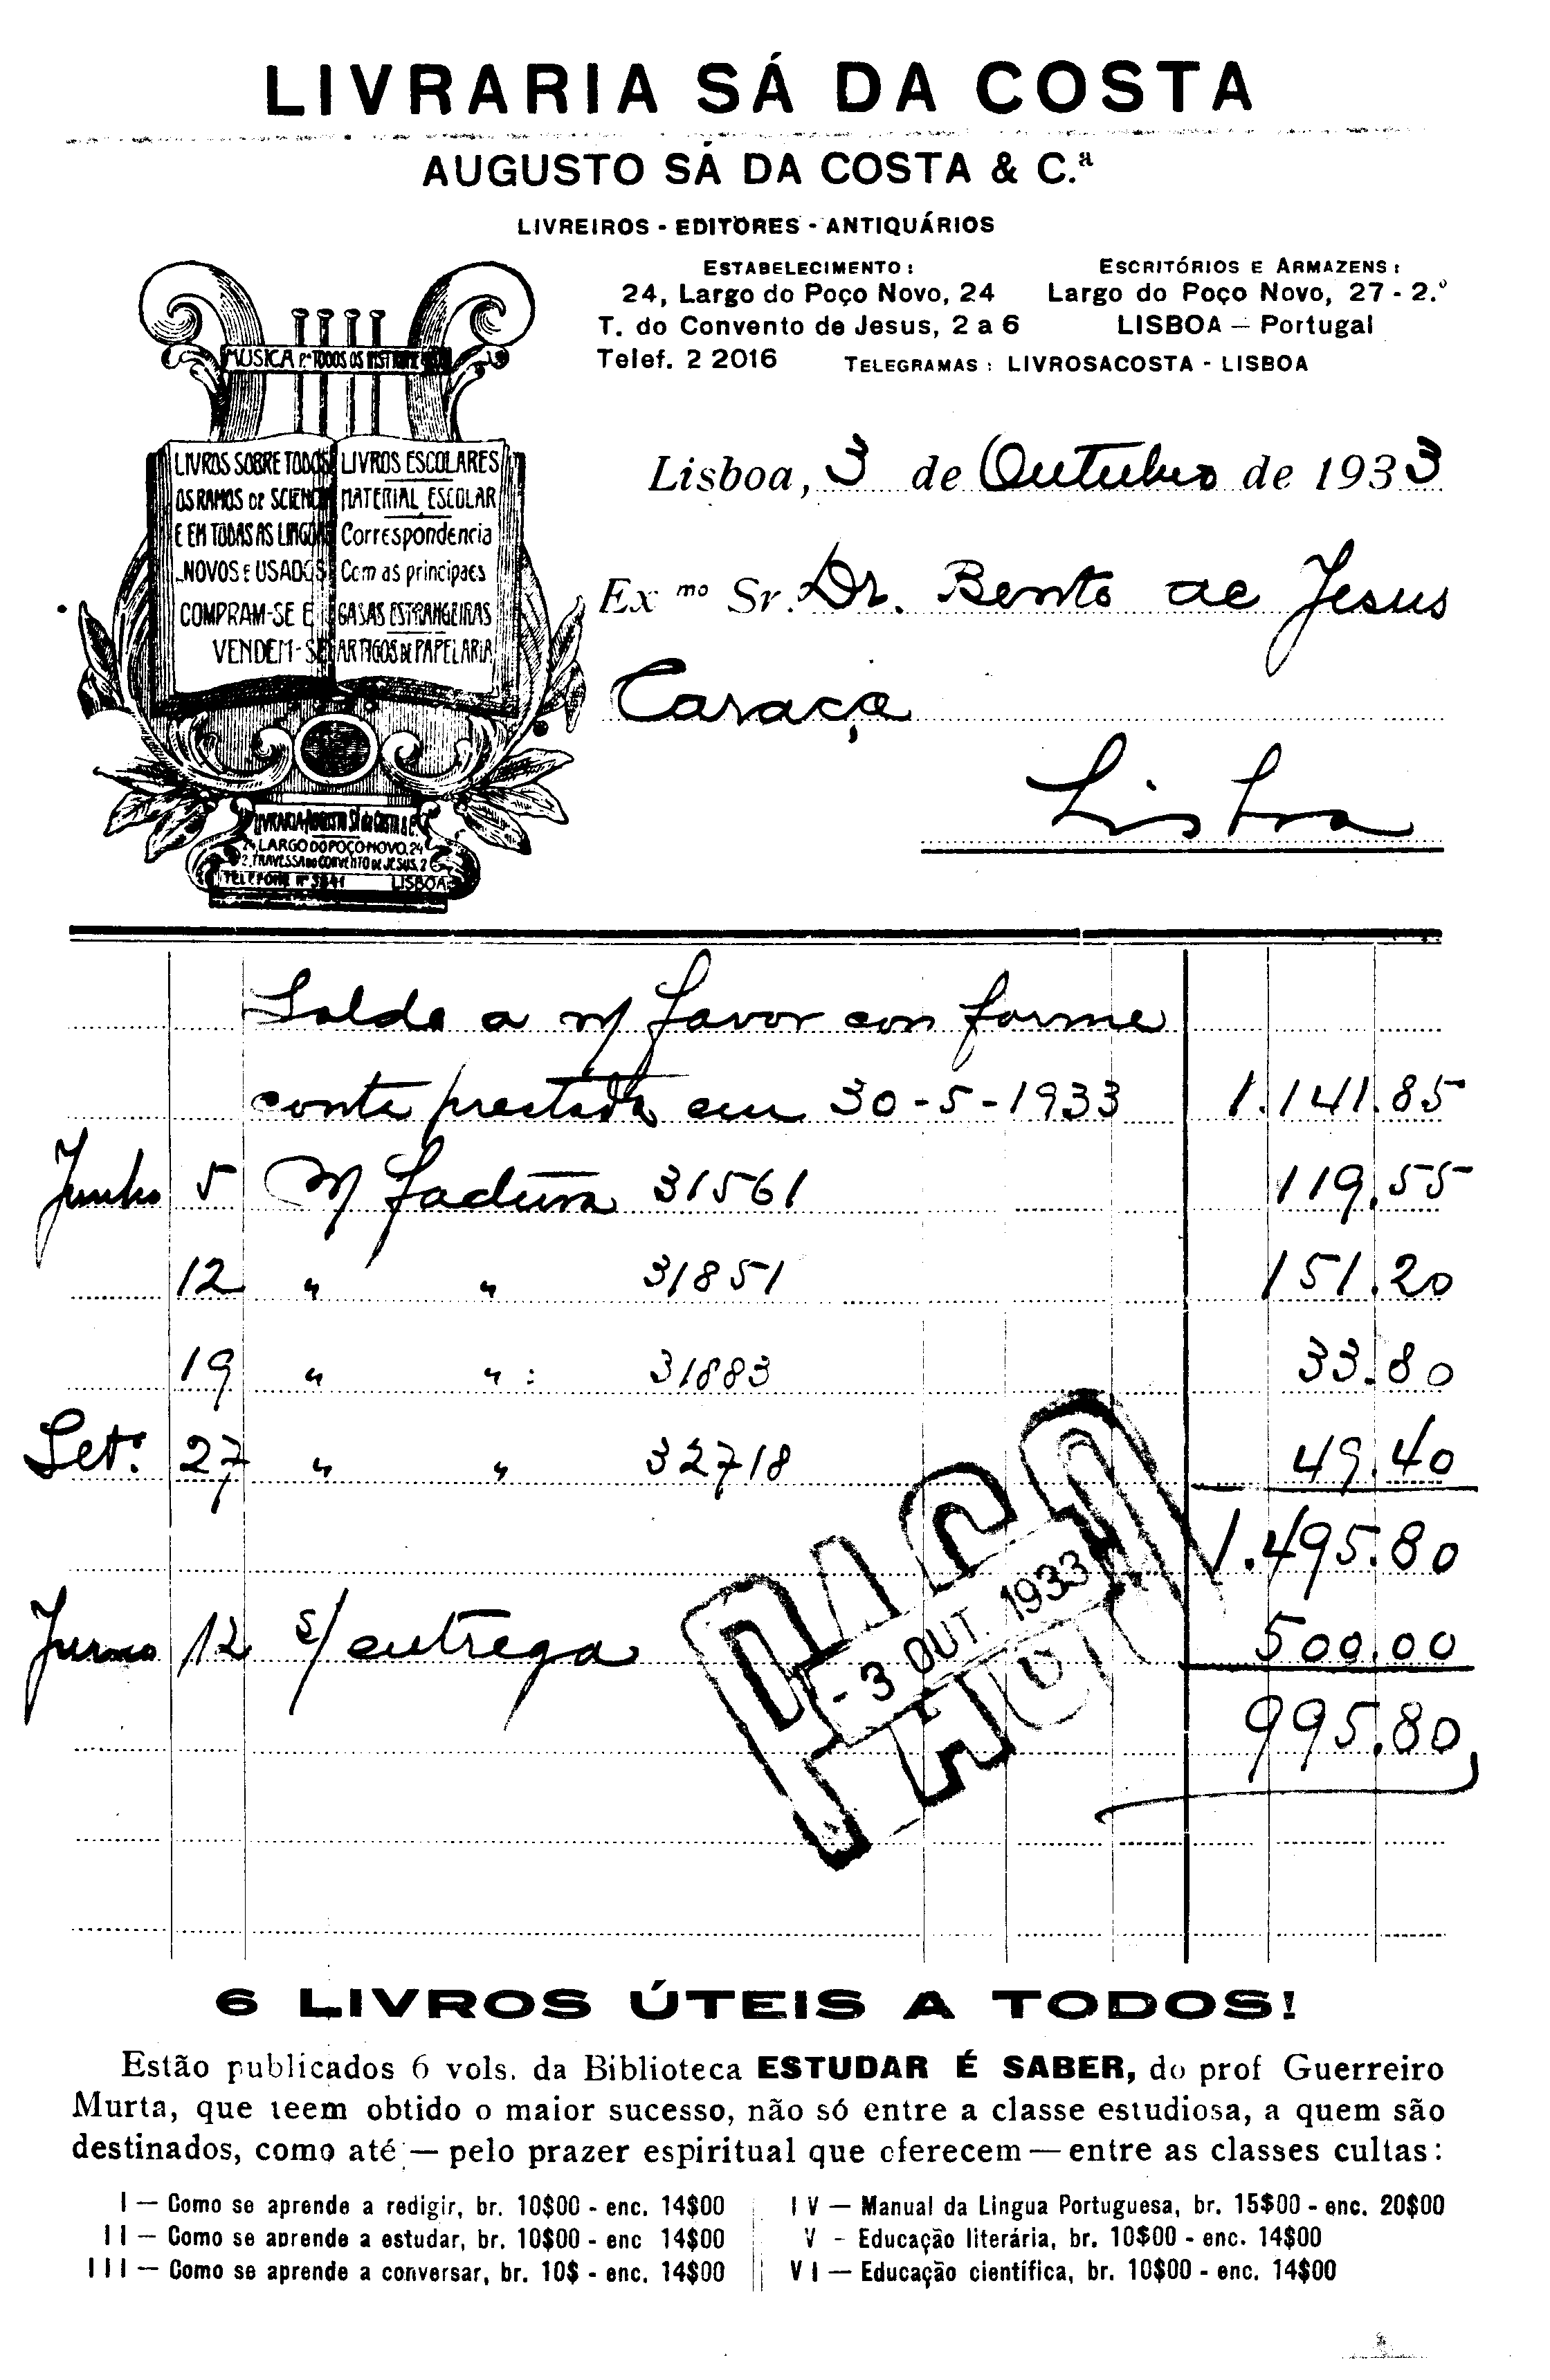 LIVRARIA SÁ DA COSTA
AUGUSTO SÁ DA COSTA & C.ª
LIVREIROS - EDITORES - ANTIQUÁRIOS
ESTABELECIMENTO:
24, Largo do Poço Novo, 24
T. do Convento de Jesus, 2 a 6
Telef. 2 2016
ESCRITÓRIOS E ARMAZENS:
Largo do Poço Novo, 27 - 2.º
LISBOA — Portugal
TELEGRAMAS: LIVROSACOSTA - LISBOA
MUSICA P.ª TODOS OS
LIVROS SOBRE TODOS
OS RAMOS DE SCIENC
E EM TODAS AS LINGUAS
NOVOS E USADOS
COMPRAM-SE E
VENDEM-SE
LIVROS ESCOLARES
MATERIAL ESCOLAR
Correspondencia
Com as principaes
CASAS ESTRANGEIRAS
ARTIGOS DE PAPELARIA
LIVRARIA AUGUSTO SÁ DA COSTA & C.ª
24, LARGO DO POÇO NOVO, 24
2, TRAVESSA DO CONVENTO DE JESUS, 2
TELEFONE Nº LISBOA
Lisboa, 3 de Outubro de 1933
Ex.mo Sr. Dr. Bento de Jesus
Caraça
Lisboa
Saldo a n/ favor con forme
conta prestada em 30-5-1933 1.141.85
Junho 5 N/ factura 31561 119.55
12 " " 31851 151.20
19 " " : 31883 33.80
Set.º 27 " " 32718 49.40
1.495.80
Junho 12 s/ entrega 500.00
995.80
PAGOU
- 3 OUT. 1933
6 LIVROS ÚTEIS A TODOS!
Estão publicados 6 vols. da Biblioteca ESTUDAR É SABER, do prof Guerreiro
Murta, que teem obtido o maior sucesso, não só entre a classe estudiosa, a quem são
destinados, como até — pelo prazer espiritual que oferecem — entre as classes cultas:
I — Como se aprende a redigir, br. 10$00 - enc. 14$00
II — Como se aprende a estudar, br. 10$00 - enc 14$00
III — Como se aprende a conversar, br. 10$ - enc. 14$00
IV — Manual da Lingua Portuguesa, br. 15$00 - enc. 20$00
V - Educação literária, br. 10$00 - enc. 14$00
VI — Educação científica, br. 10$00 - enc. 14$00